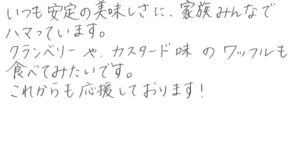 いつも安定の美味しさに、家族みんなで
ハマっています。
クランベリーや、カスタード味のワッフルも
食べてみたいです。
これからも応援しております!